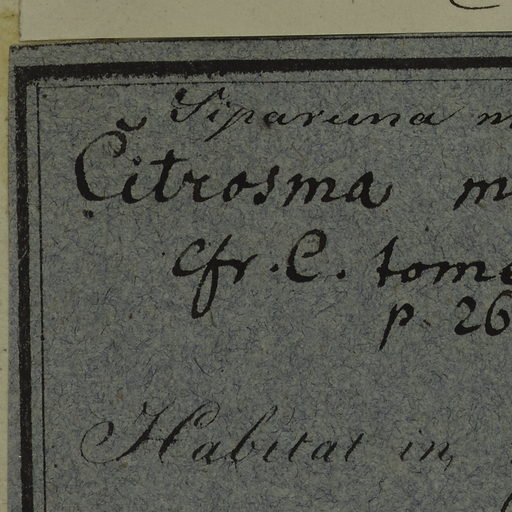 Siparuna m
Čitrosma m
cfr. C. tome
p. 26
Habitat in